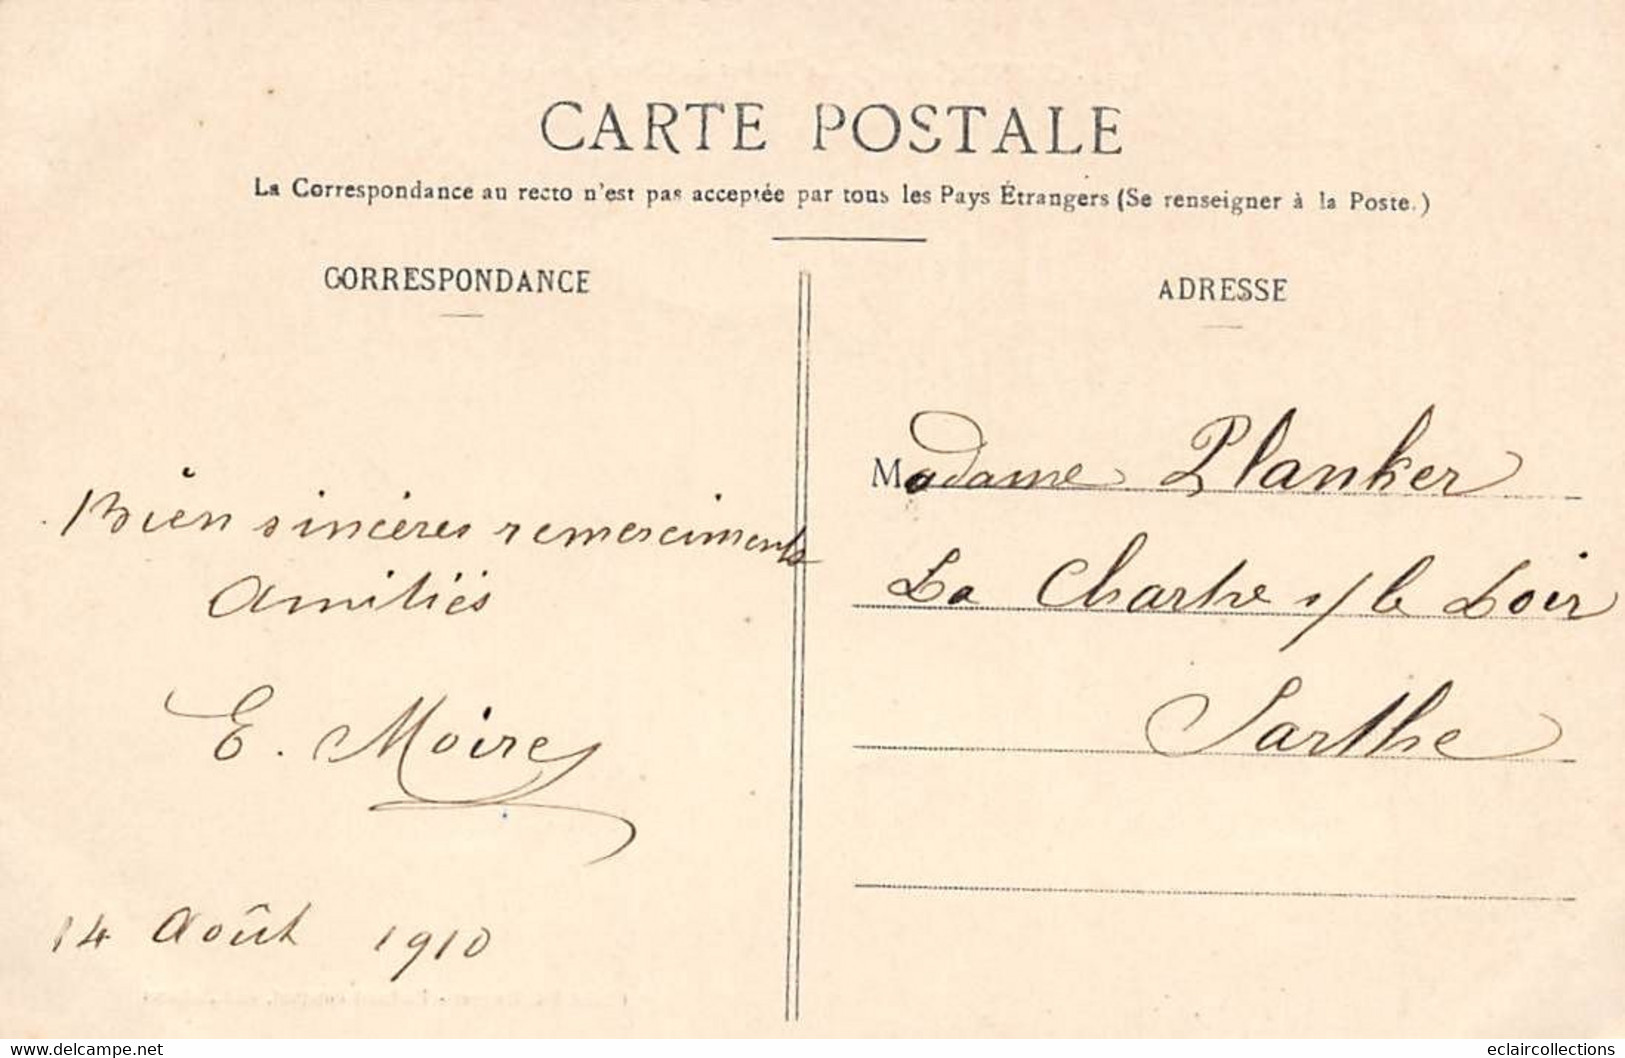 CARTE POSTALE
La Correspondance au recto n'est pas acceptée par tous les Pays Étrangers (Se renseigner à la Poste.)
CORRESPONDANCE
Bien sincères remerciments
Amitiés
E. Moire
14 Août 1910
ADRESSE
Madame Planker
La Chartre s/ le Loir
Sarthe
www.delcampe.net
eclaircollections